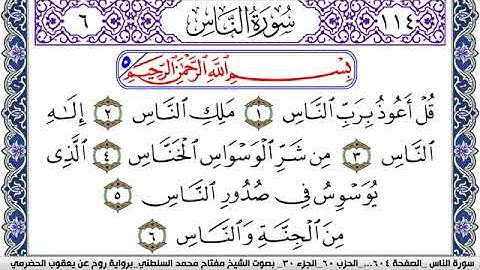 ١١٤ سُورَةُ النَّاسِ ٦
بِسْمِ اللَّهِ الرَّحْمَٰنِ الرَّحِيمِ ٥
قُلْ أَعُوذُ بِرَبِّ النَّاسِ ١ مَلِكِ النَّاسِ ٢ إِلَٰهِ
النَّاسِ ٣ مِن شَرِّ الْوَسْوَاسِ الْخَنَّاسِ ٤ الَّذِي
يُوَسْوِسُ فِي صُدُورِ النَّاسِ ٥
مِنَ الْجِنَّةِ وَالنَّاسِ ٦
سورة الناس _الصفحة ٦٠٤... الحزب ٦٠_الجزء ٣٠_ بصوت الشيخ مفتاح محمد السلطني_برواية روح عن يعقوب الحضرمي